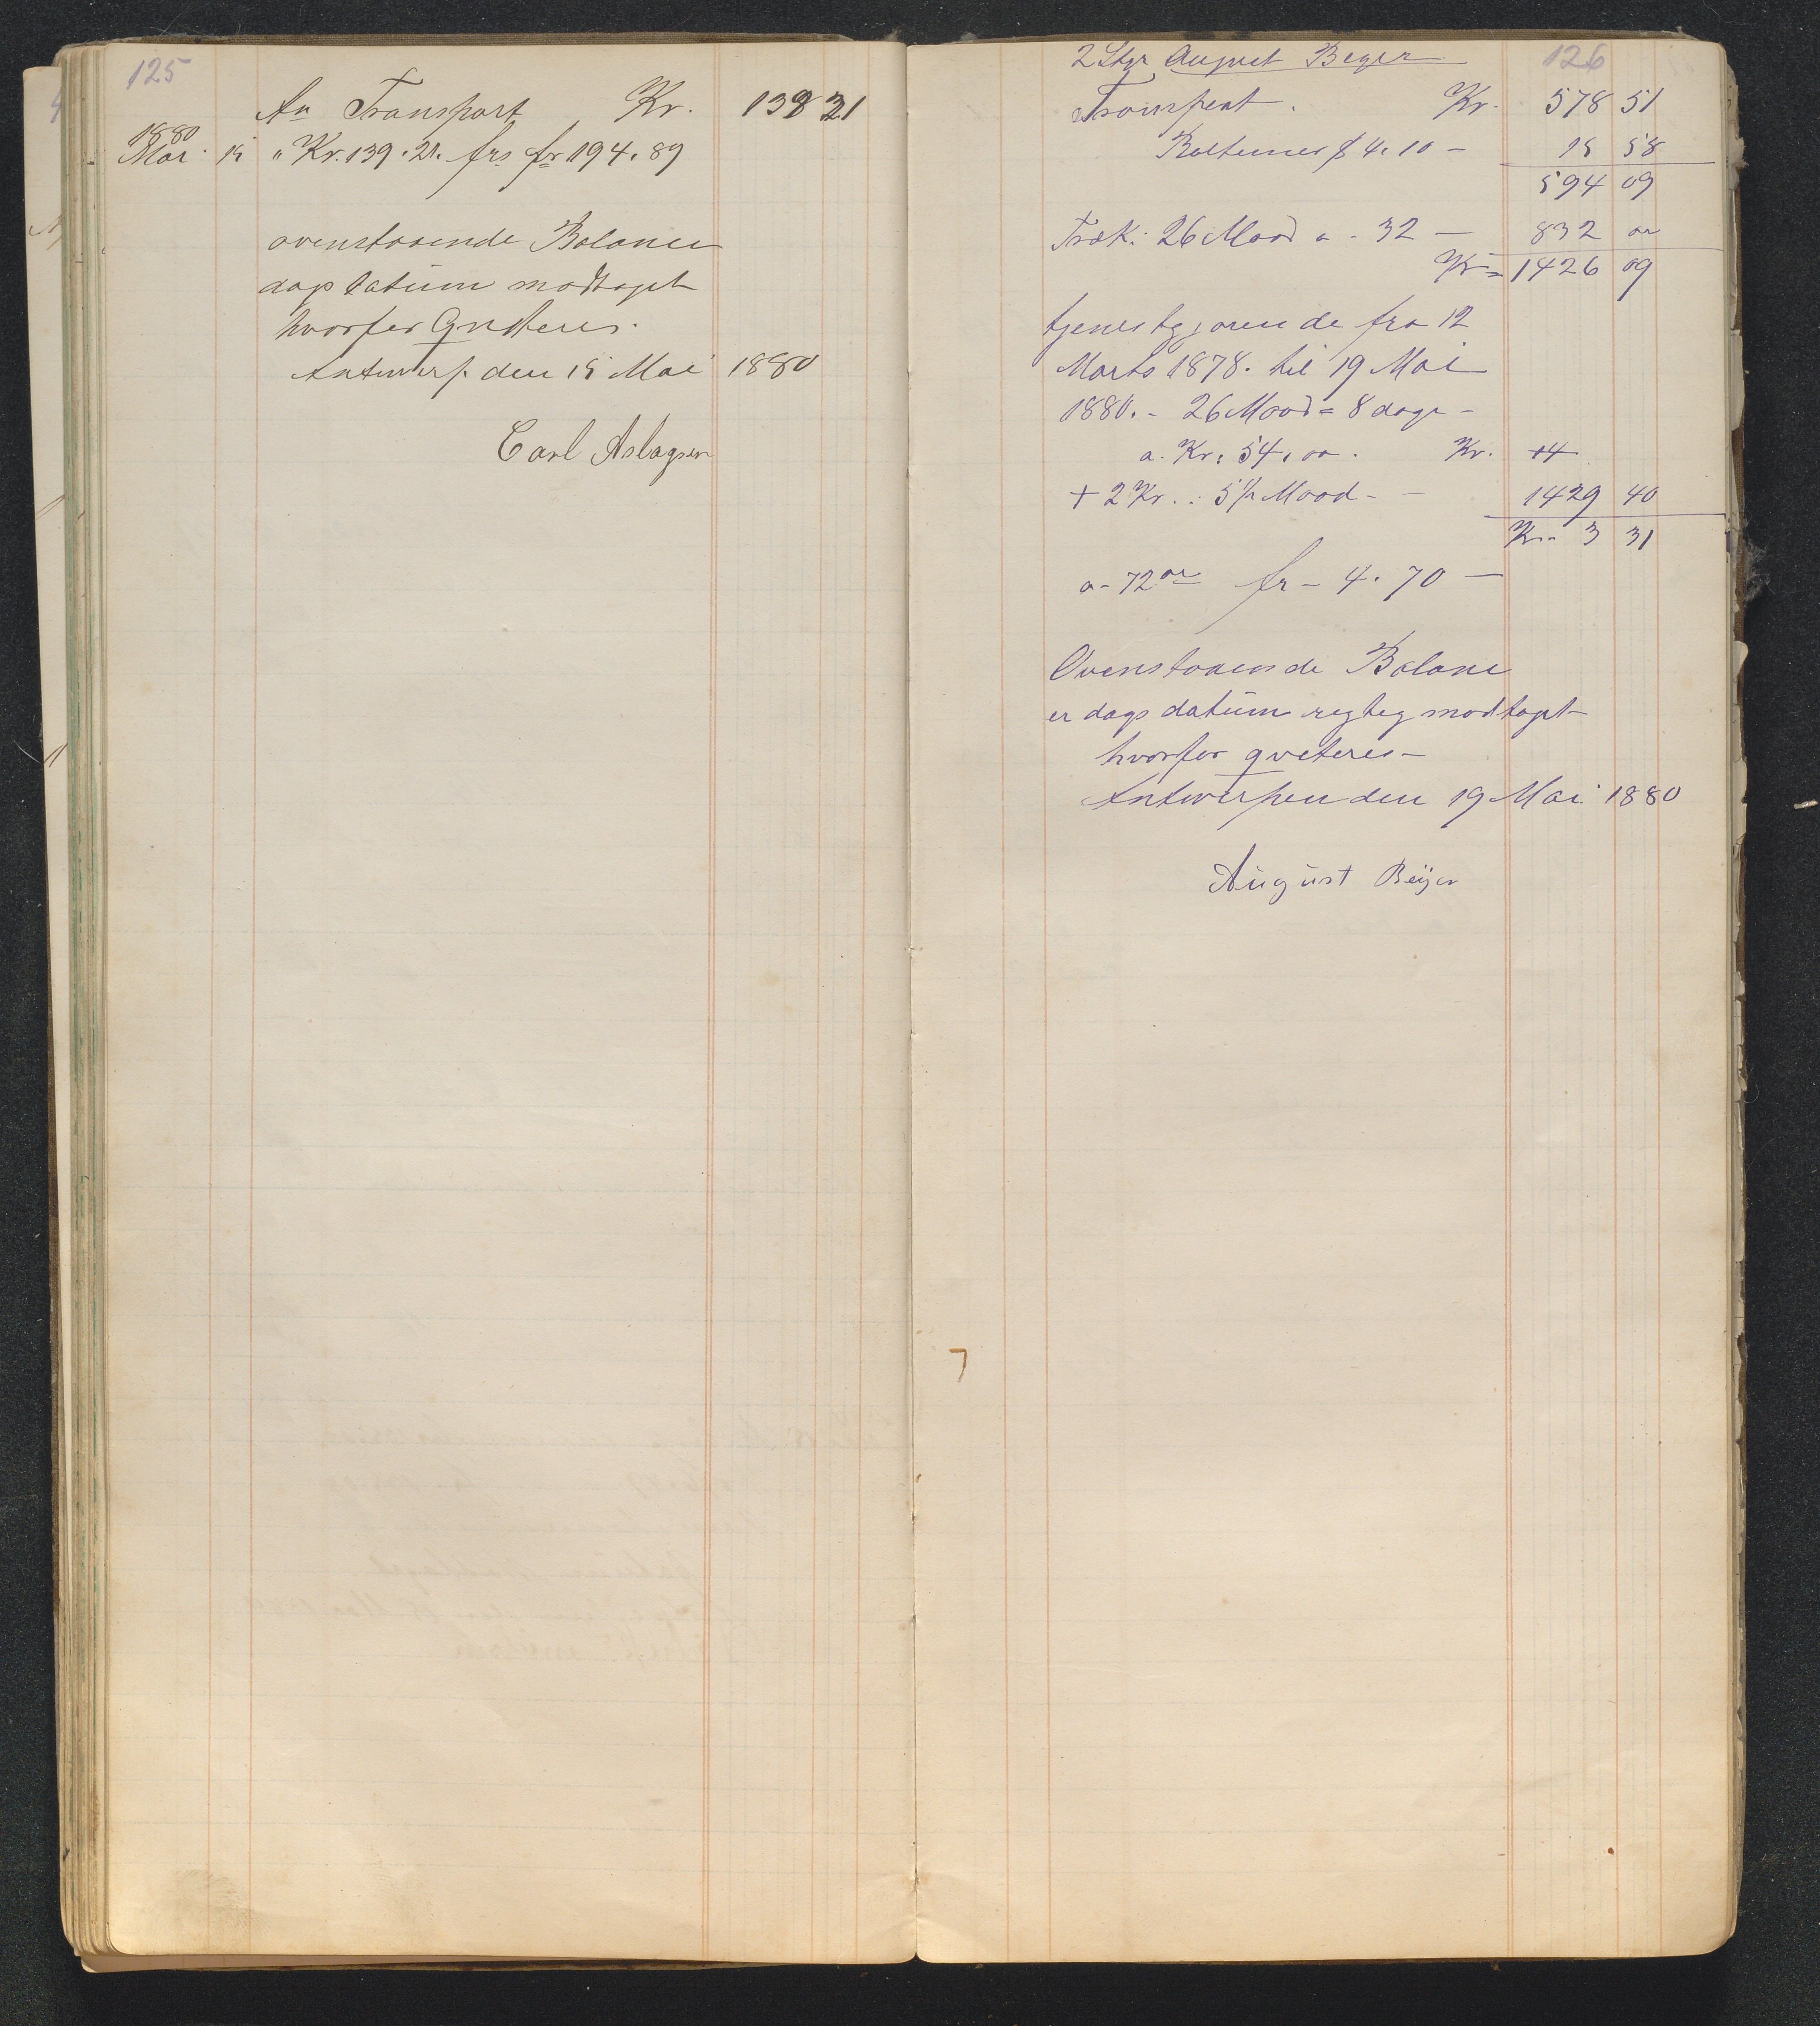 125
An Transport Kr. 139 21
1880
Mai 15 " Kr. 139.21. frs fr 194.89
ovenstaaende Balance
dags datum modtaget
hvorfor Qvitteres.
Antwerp. den 15 Mai 1880
Carl Aslagsen
126
2 Styr August Beyer
Transport. Kr. 578 51
$ 4.10 - 15 58
594 09
Træk: 26 Maad a - 32 — 832 oo
Kr = 1426 09
tjenestgjørende fra 12
Marts 1878. til 19 Mai
1880. - 26 Maad = 8 dage -
a. Kr: 54,00. Kr.
+ 2 Kr. : 5 pr Maad - - 1429 40
Kr. 3 31
a - 72 ør fr - 4.70 —
Ovenstaaende Balance
er dags datum regteg modtaget
hvorfor qviteres -
Antwerpen den 19 Mai 1880
August Beijer